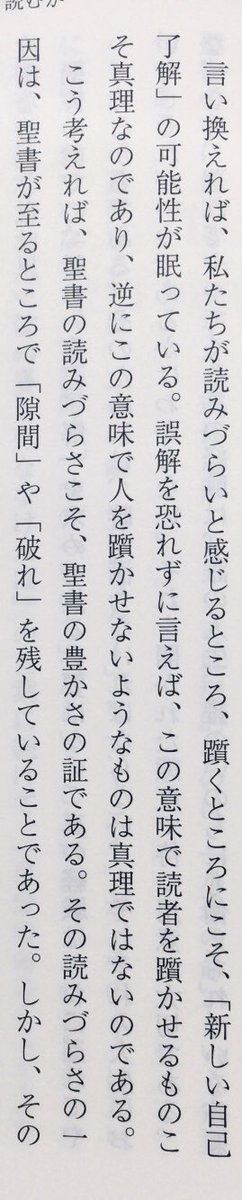 読むか
言い換えれば、私たちが読みづらいと感じるところ、躓くところにこそ、「新しい自己
了解」の可能性が眠っている。誤解を恐れずに言えば、この意味で読者を躓かせるものこ
そ真理なのであり、逆にこの意味で人を躓かせないようなものは真理ではないのである。
こう考えれば、聖書の読みづらさこそ、聖書の豊かさの証である。その読みづらさの一
因は、聖書が至るところで「隙間」や「破れ」を残していることであった。しかし、その